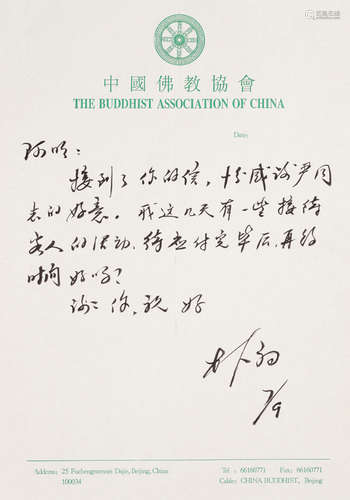 中國佛教協會
THE BUDDHIST ASSOCIATION OF CHINA
Date:
阿明：
接到了你的信，十分感谢尹同
志的好意。我这几天有一些接待
客人的活动，待应付完毕后，再约
时间好吗？
谢谢你，祝好
朴初
7/9
Address: 25 Fuchengmennei Dajie, Beijing, China
100034
Tel : 66160771 Fax: 66160771
Cable: CHINA BUDDHIST, Beijing